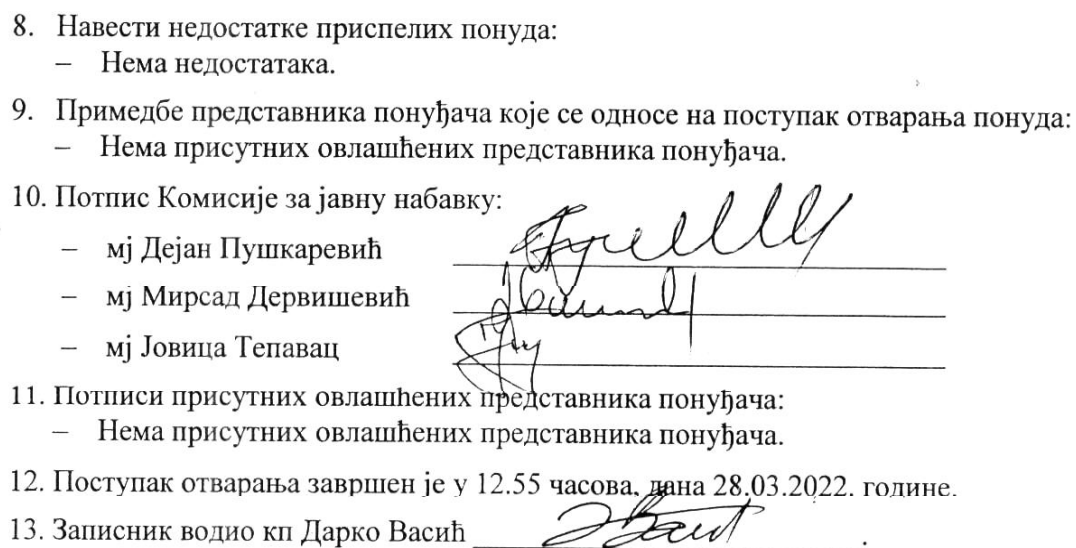 8. Навести недостатке приспелих понуда:
– Нема недостатака.
9. Примедбе представника понуђача које се односе на поступак отварања понуда:
– Нема присутних овлашћених представника понуђача.
10. Потпис Комисије за јавну набавку:
– мј Дејан Пушкаревић
– мј Мирсад Дервишевић
– мј Јовица Тепавац
11. Потписи присутних овлашћених представника понуђача:
– Нема присутних овлашћених представника понуђача.
12. Поступак отварања завршен је у 12.55 часова, дана 28.03.2022. године.
13. Записник водио кп Дарко Васић